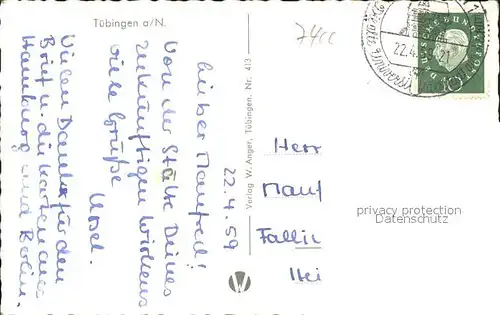 Tübingen a/N.
7400
22.4.59
Lieber Manfred!
Von der Stätte Deines
zukünftigen Wirkens
viele Grüße
Ursel.
Vielen Dank für den
Brief u. die Karten aus
Hamburg und Berlin.
Verlag W. Anger, Tübingen, Nr. 413
W
22.4.
21
DEUTSCHE BUNDESPOST
10
Herr
Manf
Hei
privacy protection
Datenschutz